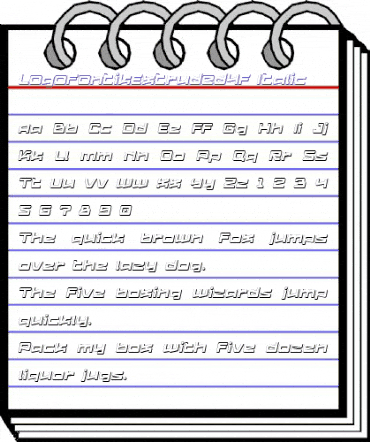 LogoFontikExtruded4F Italic
Aa Bb Cc Dd Ee Ff Gg Hh Ii Jj
Kk Ll Mm Nn Oo Pp Qq Rr Ss
Tt Uu Vv Ww Xx Yy Zz 1 2 3 4
5 6 7 8 9 0
The quick brown Fox jumps
over the lazy dog.
The Five boxing wizards jump
quickly.
Pack my box with Five dozen
liquor jugs.